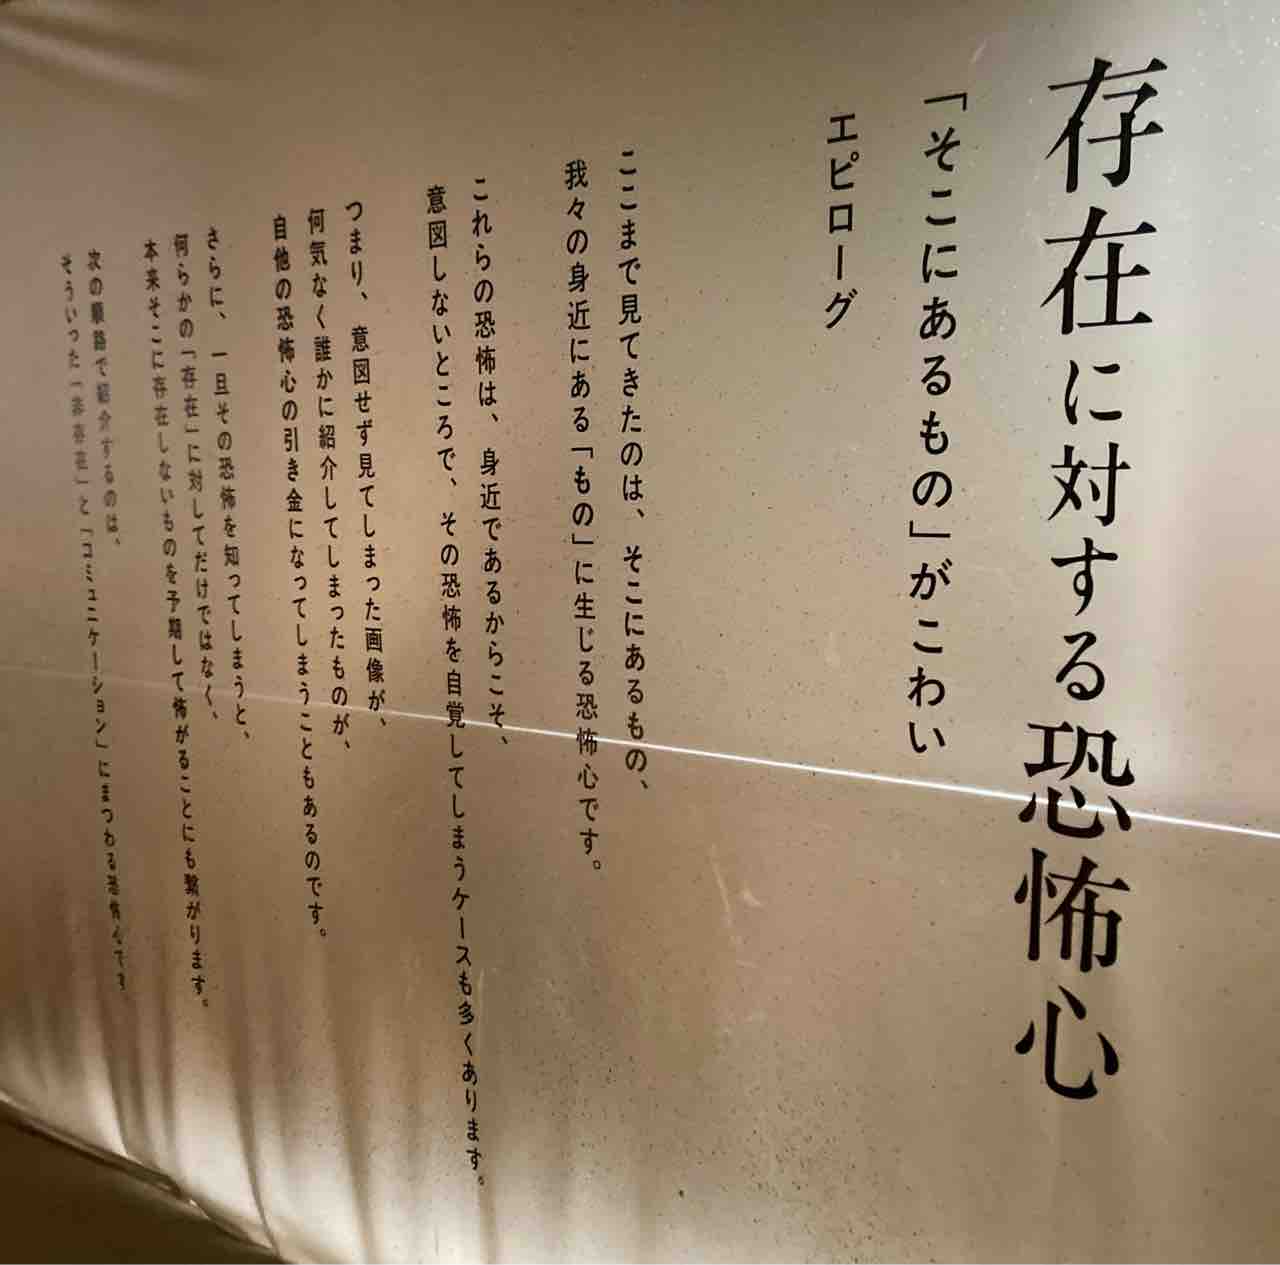 存在に対する恐怖心
「そこにあるもの」がこわい
エピローグ
ここまで見てきたのは、そこにあるもの、
我々の身近にある「もの」に生じる恐怖心です。
これらの恐怖は、身近であるからこそ、
意図しないところで、その恐怖を自覚してしまうケースも多くあります。
つまり、意図せず見てしまった画像が、
何気なく誰かに紹介してしまったものが、
自他の恐怖心の引き金になってしまうこともあるのです。
さらに、一旦その恐怖を知ってしまうと、
何らかの「存在」に対してだけではなく、
本来そこに存在しないものを予期して怖がることにも繋がります。
次の順路で紹介するのは、
そういった「非存在」と「コミュニケーション」にまつわる恐怖心です